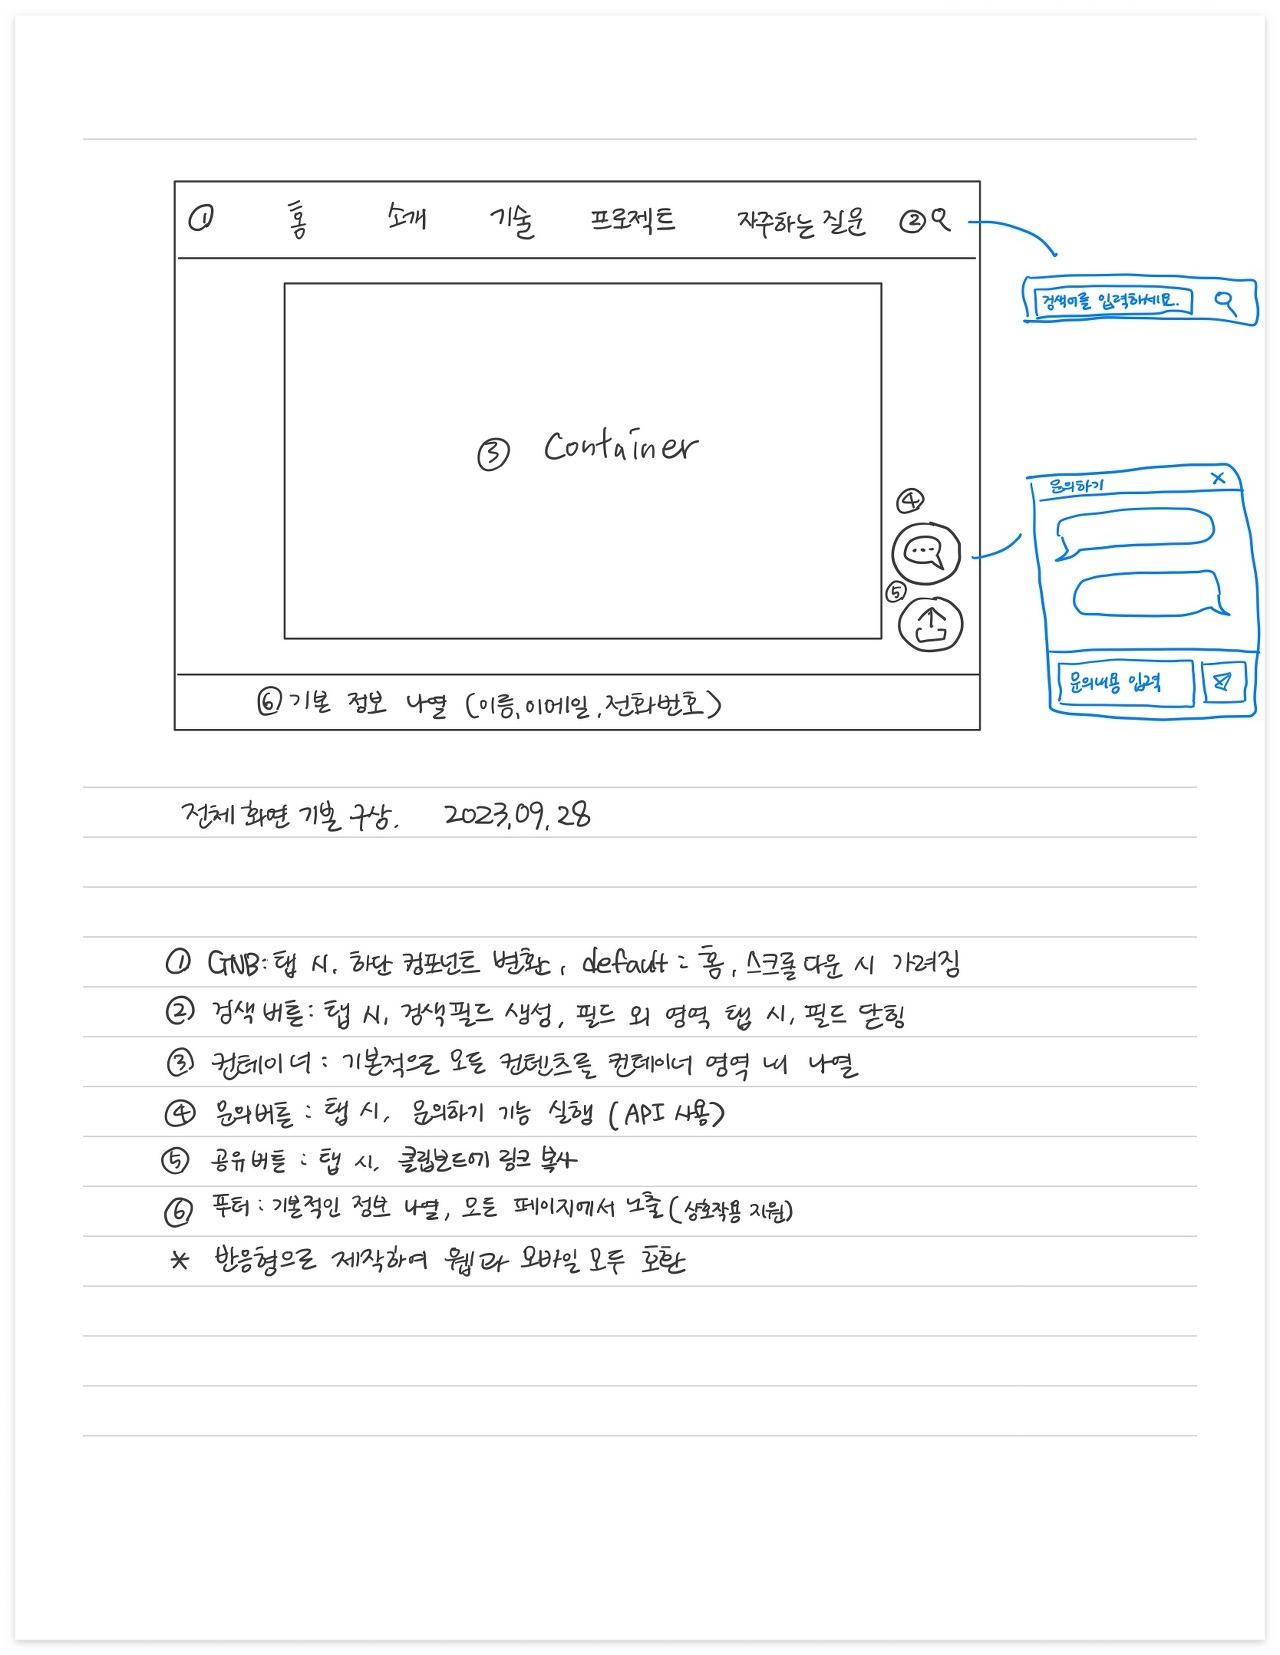 ① 홈 소개 기술 프로젝트 자주하는 질문 ②
검색어를 입력하세요.
③ Container
④
문의하기 X
⑤
문의내용 입력
⑥ 기본 정보 나열 (이름, 이메일, 전화번호)
전체 화면 기본 구상. 2023.09.28
① GNB: 탭 시, 하단 컴포넌트 변환, default = 홈, 스크롤 다운 시 가려짐
② 검색 버튼: 탭 시, 검색필드 생성, 필드 외 영역 탭 시, 필드 닫힘
③ 컨테이너 : 기본적으로 모든 컨텐츠를 컨테이너 영역 내 나열
④ 문의버튼 : 탭 시, 문의하기 기능 실행 (API 사용)
⑤ 공유버튼 : 탭 시, 클립보드에 링크 복사
⑥ 푸터 : 기본적인 정보 나열, 모든 페이지에서 노출 (상호작용 지원)
* 반응형으로 제작하여 웹과 모바일 모두 호환